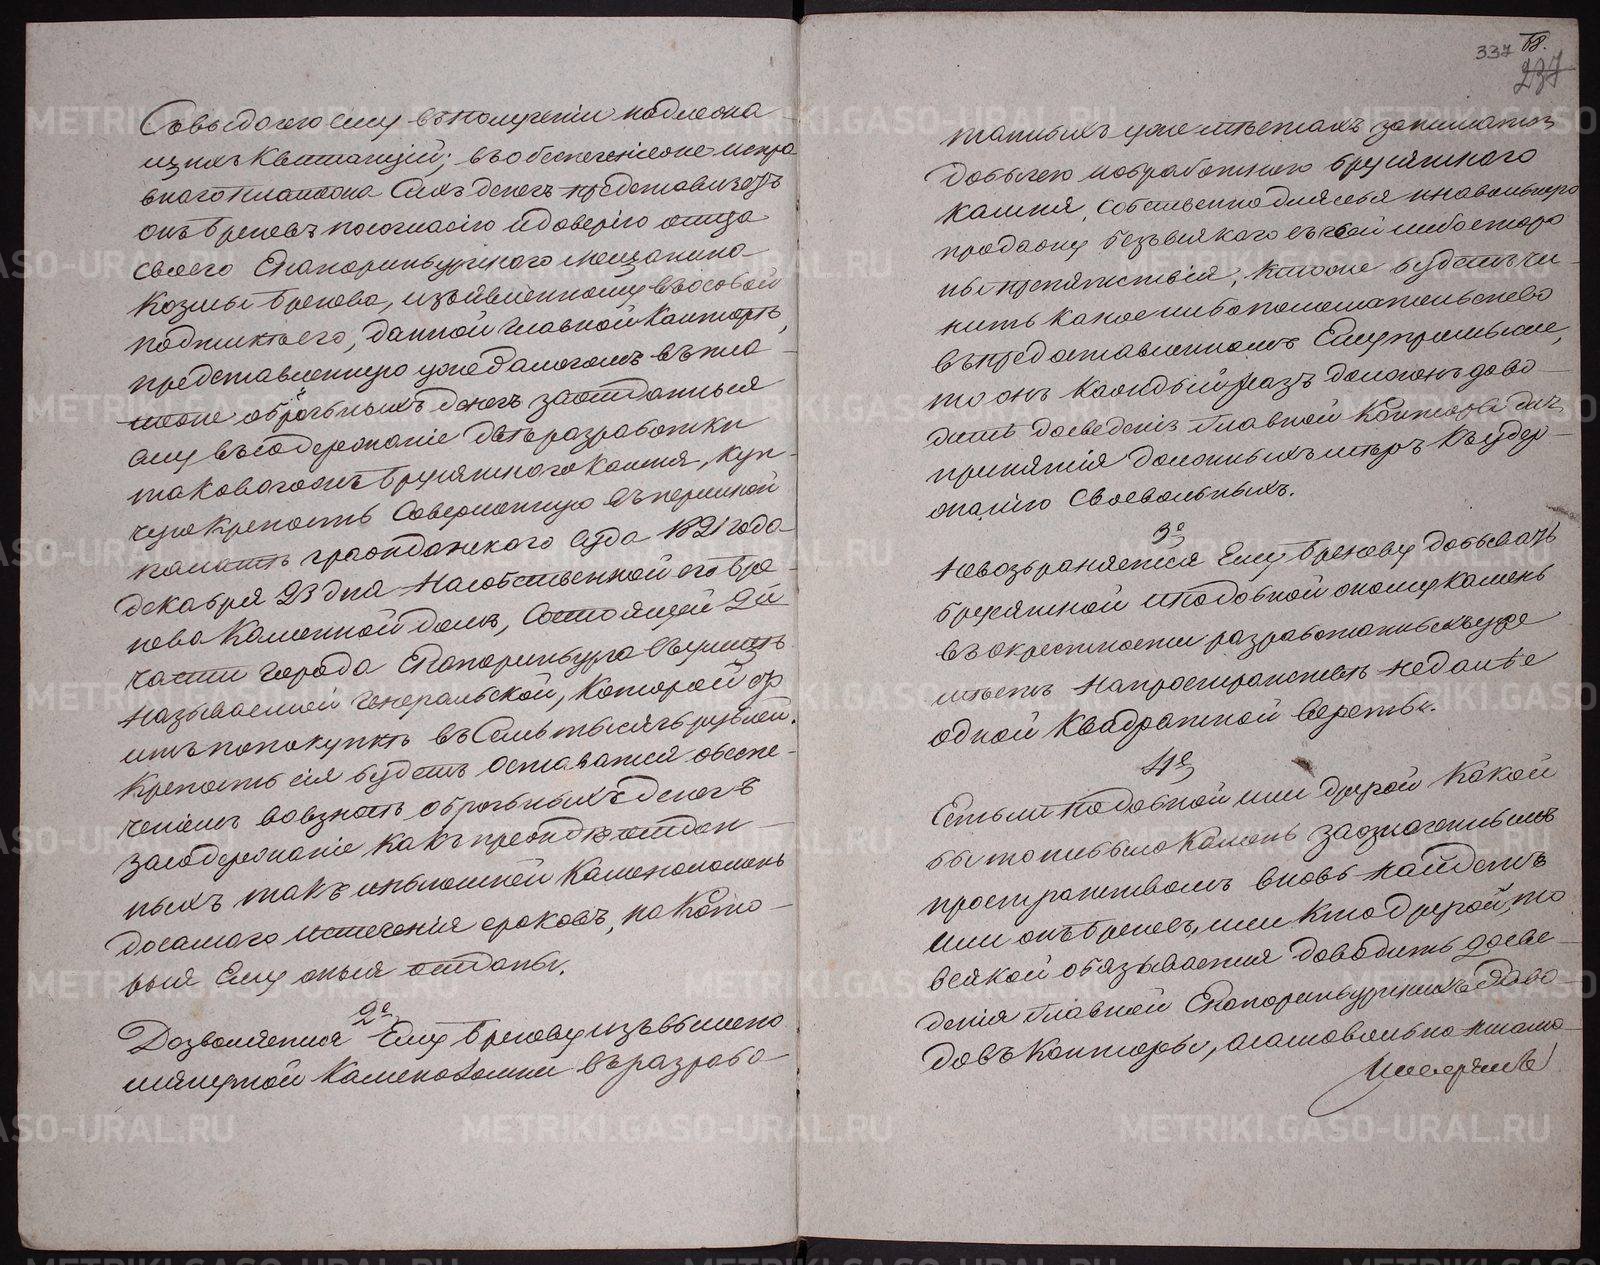 Съвыдачею ему въполучении надлежа-
щихъ квитанцiй; въобеспеченiеже испра-
внагоплатежа сихъ денегъ представилъ
онъ Брековъ посогласiю идоверiю отца
своего Екатеринбургскаго мещанина
Козмы Брекова, изъявленному въособой
подпискъего, данной главной Конторъ,
представленную ужеЗалогомъ въпла-
теже оброчныхъ денегъ заотданныя
ему въсодержанiе двъразработки
таковагожъ Брусянскаго камня, куп-
чую крепость совершенную въпермской
палатъ гражданскаго суда 1821 года
декабря 23 дня насобственной его Бре-
кова Каменной домъ, состоящей 2й
части города Екатеринбурга вулицъ
называемой Генеральской, которой
имъпопокупкъ въ семьтысячьрублей.
Крепость сiя будетъ оставатся обеспе-
ченiемъ вовзносъ оброчныхъ денегъ
засодержанiе какъпреждъотдан-
ныхъ такъ инынешней Каменоломень
досамаго истеченiя сроковъ, накото-
рыя Ему оныя отданы.
2е
Дозволяется Ему Брекову извышеио
Каменоломни въразрабо-
337
68.
237
танныхъ ужеместахъ заниматся
добычею иобработкою Брусянскаго
камня, собственно длясебя инавольную
продажу безъвсякаго съчьей либосторо-
ны препятствiя, ктоже будетъчи-
нить какоелибопомешательство
въпредоставленномъ Емупромысле,
тоонъ каждый разъ долженъ дово-
дить досведенiя главной Конторы для
принятiя должныхъ меръ къудер-
жанiю своевольныхъ.
3е
Невозбраняется Ему Брекову добывать
Брусяной иподобной оному камень
въокрестности разработанныхъуже
местъ напространствъ недалее
одной квадратной версты.
4е
Естьли подобной или другой какой
бытонибыло камень заозначеннымъ
пространствомъ вновь найдетъ
или онъ Брековъ, или кто другой, то
всякой обязывается доводить досве-
денiя главной Екатеринбургскихъ Заво-
довъ Конторы, асамовольно никто